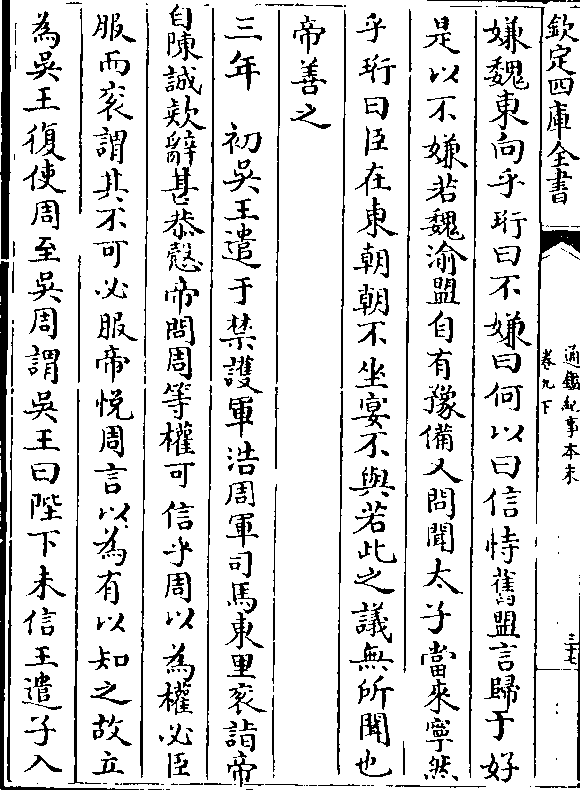 欽定四庫全書
通鑑紀事本末
卷九下
三七
嫌魏東向乎珩曰不嫌曰何以曰信恃舊盟言歸于好
是以不嫌若魏渝盟自有豫備又問聞太子當來寧然
乎珩曰臣在東朝朝不坐宴不與若此之議無所聞也
帝善之
三年　初吳王遣于禁護軍浩周軍司馬東里袞詣帝
自陳誠款辭甚恭慤帝問周等權可信乎周以為權必臣
服而袞謂其不可必服帝悅周言以為有以知之故立
為吳王復使周至吳周謂吳王曰陛下未信王遣子入